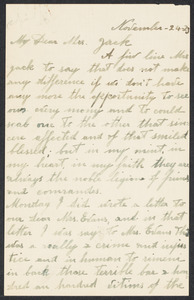 November - 24-
My Dear Mrs. Jack
A few line Mrs.
Jack to say that does not make
any difference if we don't have
any more the opportunity to see
us every money and to could
one to the other that
are affected and of that smiled
blessed; but in my mint, in
my heart, in my faith they are
always the noble legion of friends
and comrades.
Monday I did wrote a letter to
our dear Mrs. Evans, and in that
letter I was say to Mrs. Evans
a really a crime and injus-
tice and in human to remain
in back those terrible bar
an hundred victims of the